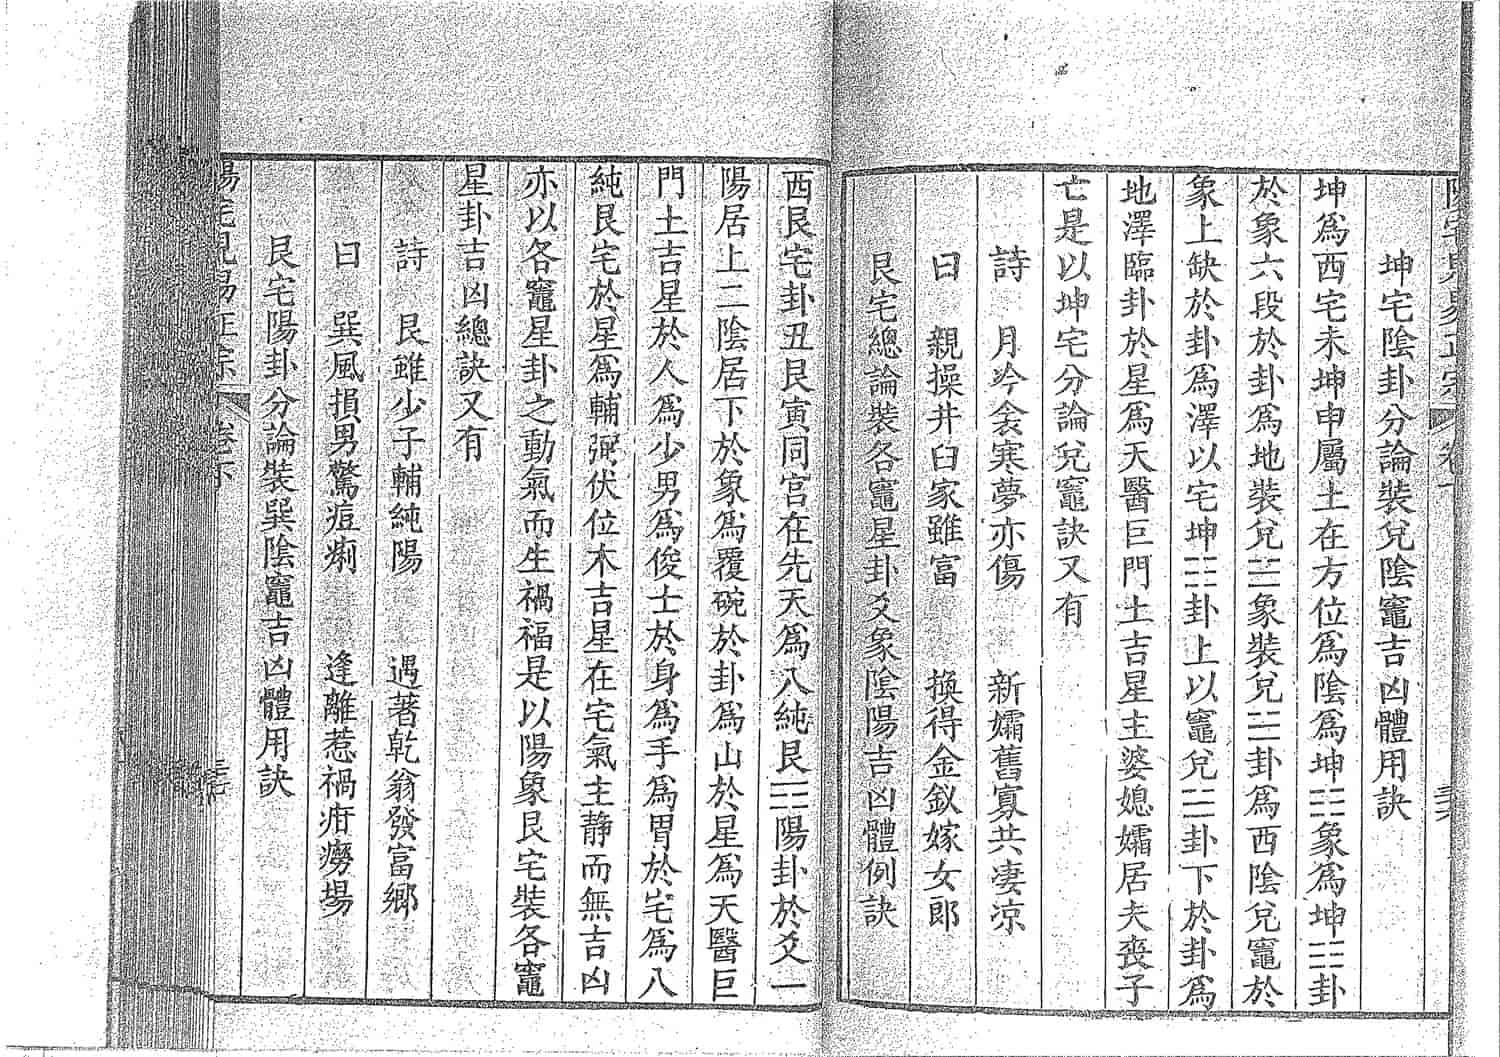 坤宅陰卦分論裝兌陰竈吉凶體用訣
坤爲西宅未坤申屬土在方位爲陰爲坤☷象爲坤☷卦
於象六段於卦爲地裝兌☱象裝兌☱卦爲西陰兌竈於
象上缺於卦爲澤以宅坤☷卦上以竈兌☱卦下於卦爲
地澤臨卦於星爲天醫巨門土吉星主婆媳孀居夫喪子
亡是以坤宅分論兌竈訣又有
詩　月冷衾寒夢亦傷　新孀舊寡共凄凉
曰　親操井臼家雖富　換得金釵嫁女郎
艮宅總論裝各竈星卦爻象陰陽吉凶體例訣
西艮宅卦丑艮寅同宮在先天爲八純艮☶陽卦於爻一
陽居上二陰居下於象爲覆碗於卦爲山於星爲天醫巨
門土吉星於人爲少男爲俊士於身爲手爲胃於宅爲八
純艮宅於星爲輔弼伏位木吉星在宅氣主静而無吉凶
亦以各竈星卦之動氣而生禍福是以陽象艮宅裝各竈
星卦吉凶總訣又有
詩　艮雖少子輔純陽　遇著乾翁發富鄉
曰　巽風損男驚痘痢　逢離惹禍疳癆場
艮宅陽卦分論裝巽陰竈吉凶體用訣
陽宅見易正宗　卷下